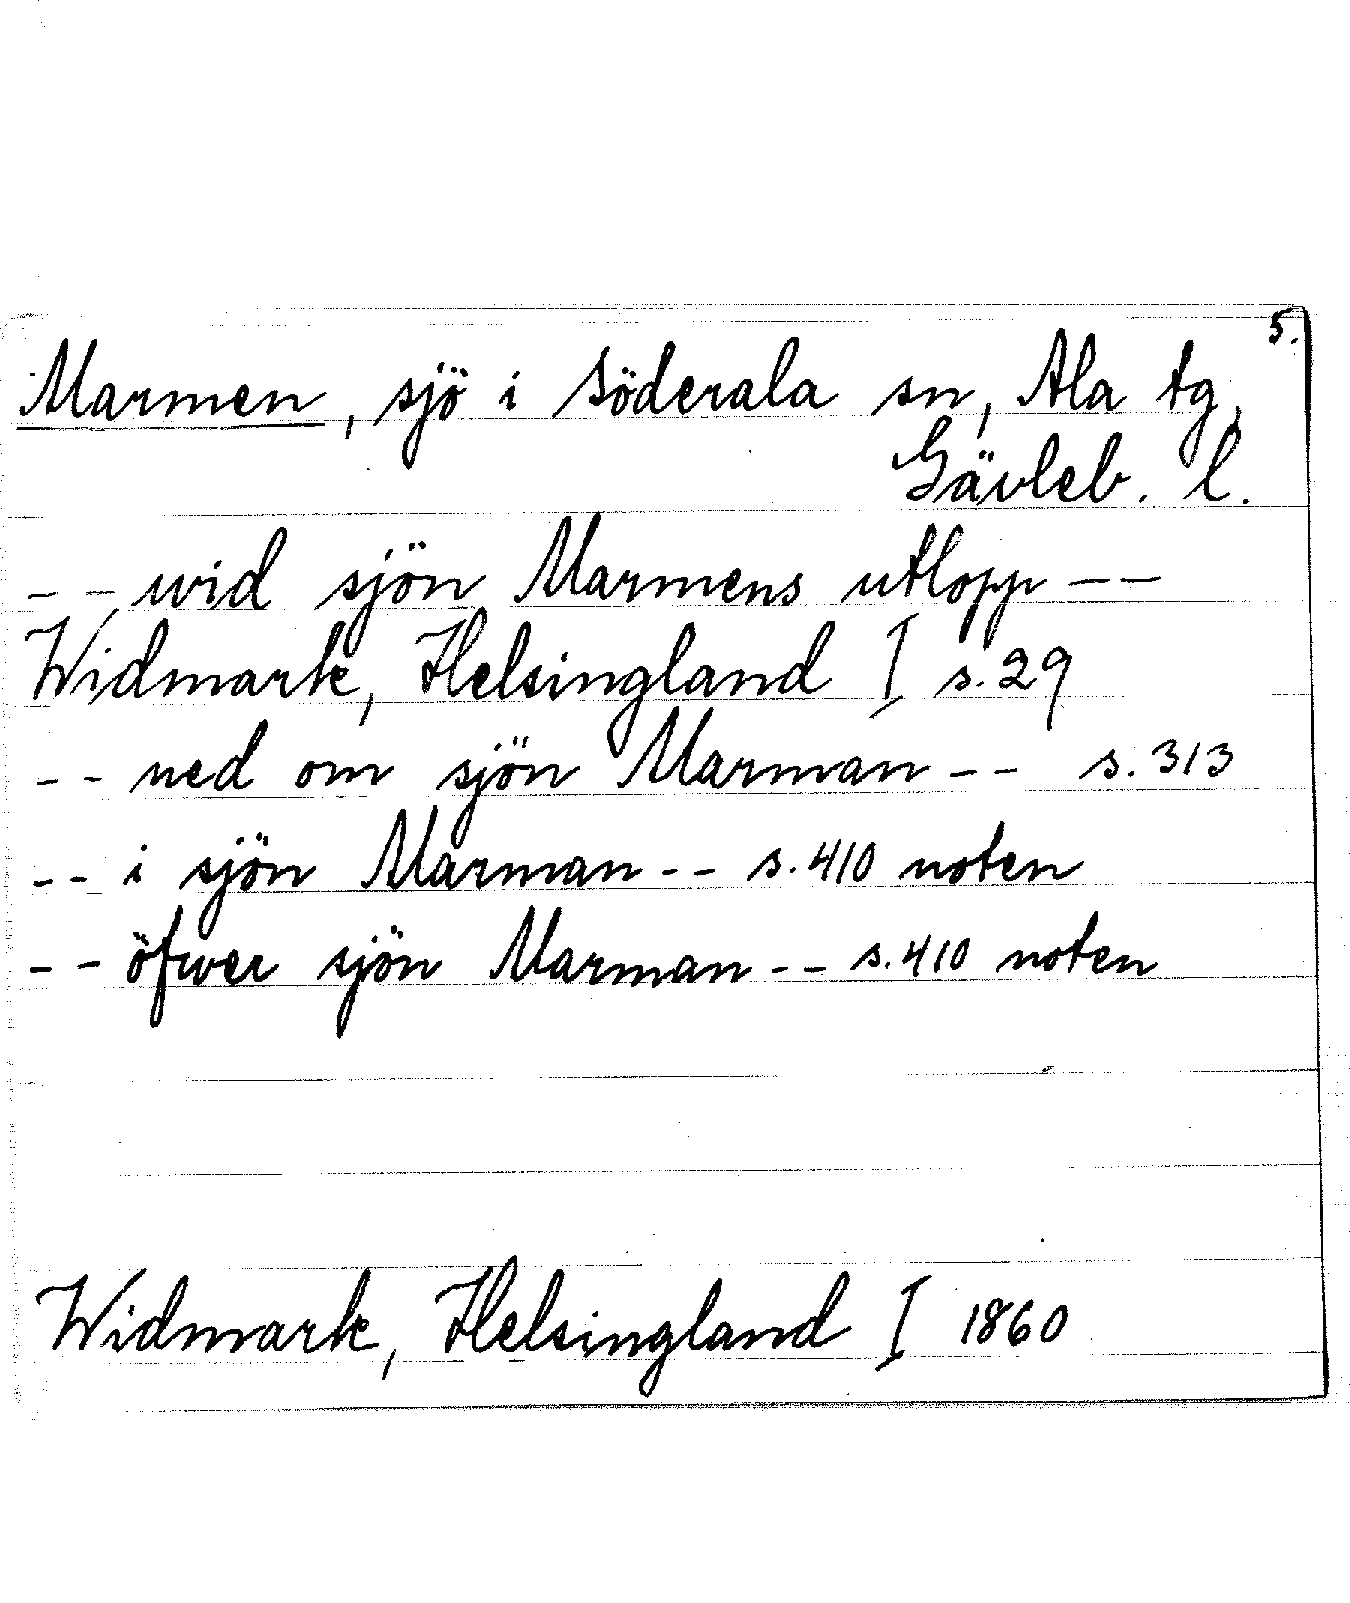 5.
Marmen, sjö i Söderala sn, Ala tg,
Gävleb. l.
-- wid sjön Marmens utlopp --
Widmark, Helsingland I s. 29
-- ned om sjön Marman -- s. 313
-- i sjön Marman -- s. 410 noten
-- öfwer sjön Marman -- s. 410 noten
Widmark, Helsingland I 1860